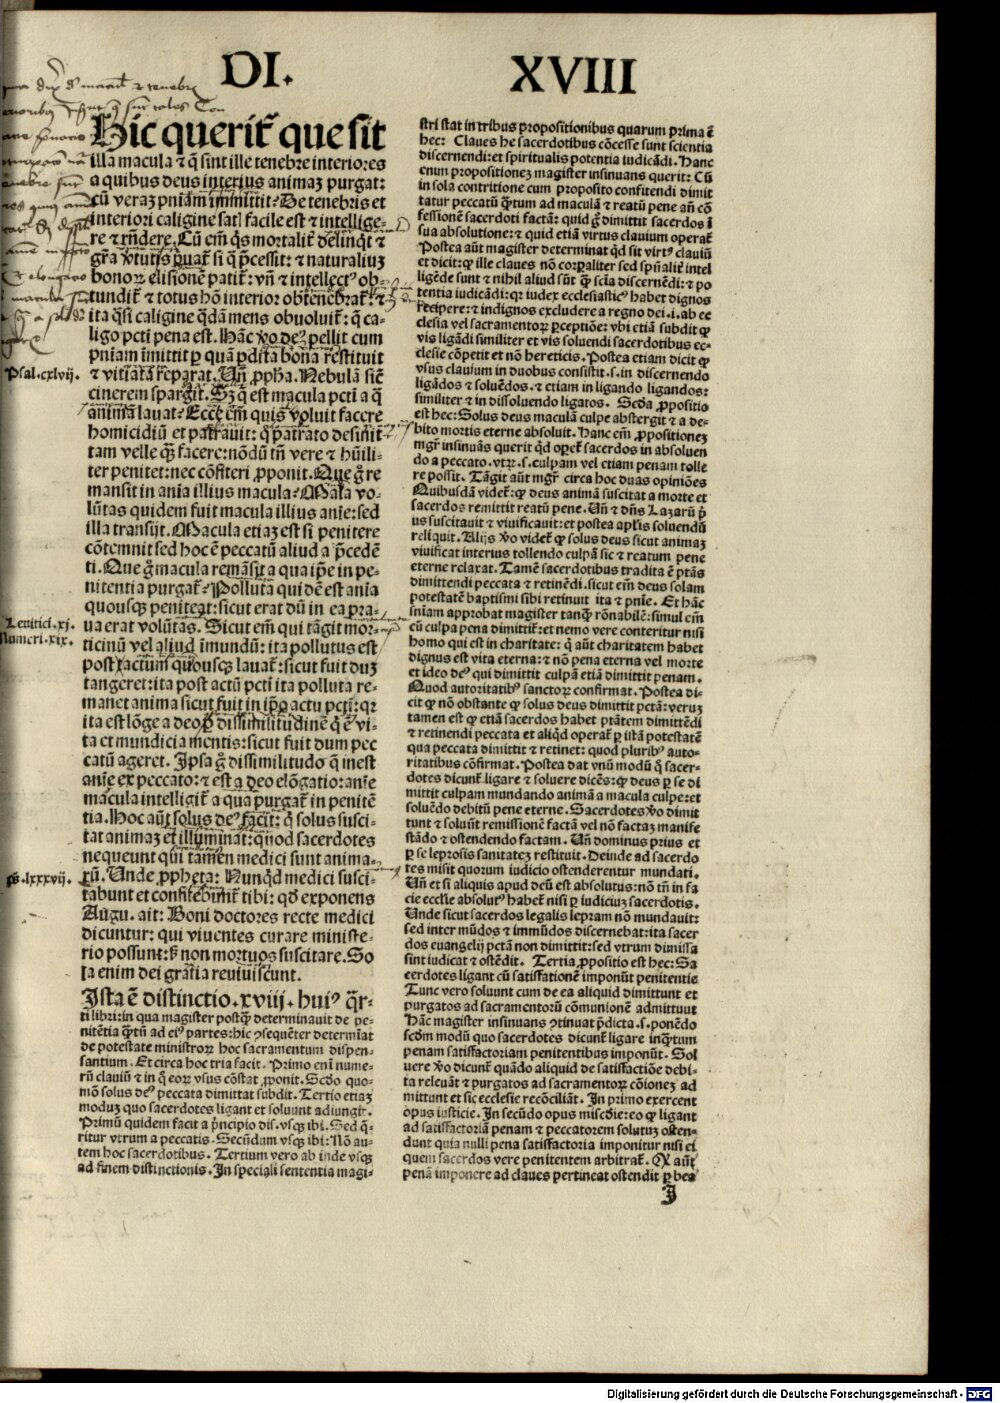 DI. XVIII
Hic querit᷑ que sit
illa macula ⁊ q̃ sint ille tenebre interiores
a quibus deus interius animaȝ purgat:
cũ veraȝ pniam immittit? De tenebris et
interiori caligine sat᷑ facile est ⁊ intellige-
re ⁊ rñdere. Cũ em̃ q̃s mortalit᷑ delinq̃t ⁊
bonoꝝ elisionẽ patit᷑: vñ ⁊ intellect⁹ ob-
tundit᷑ ⁊ totus hõ interior obtenebrat᷑: ⁊
ita q̃si caligine q̃dã mens obuoluit᷑: q̃ ca-
ligo pcti pena est. Hãc ꝟo de⁹ pellit cum
pniam ĩmittit ꝑ quã ꝑdita bona restituit
Psal. cxlvij. ⁊ vitiata reparat. Uñ ꝓpha. Nebulã sic̃
cinerem spargit. Sȝ q̃ est macula pcti a q̃
animã lauat? Ecce em̃ quis voluit facere
homicidiũ et patrauit: q̃ patrato desinit
tam velle q̃ȝ facere: nõdũ tñ vere ⁊ hũili-
ter penitet: nec cõfiteri ꝓponit. Que g̃ re
mansit in aĩa illius macula? Mala vo-
lũtas quidem fuit macula illius aĩe: sed
illa transijt. Macula etiaȝ est si penitere
cõtemnit sed hoc ẽ peccatũ aliud a p̃cedẽ
ti. Que g̃ macula remãsit a qua ip̃e in pe-
nitentia purgat᷑? Polluta qui dẽ est aĩa
quousqȝ peniteat: sicut erat dũ in ea pra-
Leuitici. xj. ua erat volũtas. Sicut em̃ qui tãgit mor-
Numeri. xix. ticinũ vel aliud imundũ: ita pollutus est
post tactum quousqȝ lauat᷑: sicut fuit duȝ
tangeret: ita post actũ pcti ita polluta re-
manet anima sicut fuit in ip̃o actu pcti: qꝛ
ita est lõge a deo ꝑ dissimilitudinẽ q̃ ẽ vi-
ta et mundicia mentis: sicut fuit dum pec
catũ ageret. Ipsa g̃ dissimilitudo q̃ inest
anĩe ex peccato: ⁊ est a deo elõgatio: anĩe
macula intelligit᷑ a qua purgat᷑ in penitẽ
tia. Hoc aũt solus de⁹ facit: q̃ solus susci-
tat animaȝ et illuminat: quod sacerdotes
nequeunt qui tamen medici sunt anima-
ps. lxxxvij. rũ. Unde ꝓpheta: Nunq̃d medici susci-
tabunt et confitebunt᷑ tibi: qd̃ exponens
Augu. ait: Boni doctores recte medici
dicuntur: qui viuentes curare ministe-
rio possunt: sȝ non mortuos suscitare. So
la enim dei gratia reuiuiscunt.
Ista ẽ distinctio. xviij. hui⁹ q̃r-
ti libri: in qua magister postq̃ȝ determinauit de pe-
nitẽtia q̃tũ ad ei⁹ partes: hic ꝯsequẽter determĩat
de potestate ministroꝝ hoc sacramentum dispen-
santium. Et circa hoc tria facit. Primo enĩ nume-
rũ clauiũ ⁊ in q̃ eoꝝ vsus cõstat ꝓponit. Scd̃o quo-
mõ solus de⁹ peccata dimittat subdit. Tertio etiaȝ
moduȝ quo sacerdotes ligant et soluunt adiungit.
Primũ quidem facit a p̃ncipio dis. vsqȝ ibi. Sed q̃-
ritur vtrum a peccatis. Secũdum vsqȝ ibi: Nõ au-
tem hoc sacerdotibus. Tertium vero ab inde vsqȝ
ad finem distinctionis. In speciali sententia magi-
stri stat in tribus propositionibus quarum prima ẽ
hec: Claues he sacerdotibus cõcesse sunt scientia
discernendi: et spiritualis potentia iudicãdi. Hanc
enim propositioneȝ magister insinuans querit: Cũ
in sola contritione cum proposito confitendi dimit
tatur peccatũ q̃tum ad maculã ⁊ reatũ pene añ cõ
fessionẽ sacerdoti factã: quid g̃ dimittit sacerdos ĩ
sua absolutione: ⁊ quid etiã virtus clauium operat᷑
Postea aũt magister determinat qd̃ sit virt⁹ clauiũ
et dicit: ꝙ ille claues nõ corꝑaliter sed spñalit᷑ intel
ligẽde sunt ⁊ nihil aliud sũt q̃ȝ scĩa discernẽdi: ⁊ po
tentia iudicãdi: qꝛ iudex ecclesiastic⁹ habet dignos
recipere: ⁊ indignos excludere a regno dei. i. ab ec
clesia vel sacramentoꝝ ꝑceptiõe: vbi etiã subdit ꝙ
vis ligãdi similiter et vis soluendi sacerdotibus ec-
clesie cõpetit et nõ hereticis. Postea etiam dicit ꝙ
vsus clauium in duobus consistit. s. in discernendo
ligãdos ⁊ soluẽdos. ⁊ etiam in ligando ligandos:
similiter ⁊ in dissoluendo ligatos. Scd̃a ꝓpositio
est hec: Solus deus maculã culpe abstergit ⁊ a de-
bito mortis eterne absoluit. Hanc em̃ ꝓpositioneȝ
mgr̃ insinuãs querit qd̃ operet᷑ sacerdos in absoluen
do a peccato. vtꝝ. s. culpam vel etiam penam tolle
re possit. Tãgit aũt mgr̃ circa hoc duas opiniões
Quibusdã videt᷑: ꝙ deus animã suscitat a morte et
sacerdos remittit reatũ pene. Uñ ⁊ dñs Lazarũ p̃
us suscitauit ⁊ viuificauit: et postea apl̃is soluendũ
reliquit. Alijs ꝟo videt᷑ ꝙ solus deus sicut animaȝ
viuificat interius tollendo culpã sic ⁊ reatum pene
eterne relaxat. Tamẽ sacerdotibus tradita ẽ ptãs
dimittendi peccata ⁊ retinẽdi. sicut em̃ deus solam
potestatẽ baptismi sibi retinuit ita ⁊ pnĩe. Et hãc
sniam approbat magister tanq̃ȝ rõnabilẽ: simul em̃
cũ culpa pena dimittit᷑: et nemo vere conteritur nisi
homo qui est in charitate: q̃ aũt charitatem habet
dignus est vita eterna: ⁊ nõ pena eterna vel morte
et ideo de⁹ qui dimittit culpã etiã dimittit penam.
Quod autoritatib⁹ sanctoꝝ confirmat. Postea di-
cit ꝙ nõ obstante ꝙ solus deus dimittit pctã: veruȝ
tamen est ꝙ etiã sacerdos habet ptãtem dimittẽdi
⁊ retinendi peccata et aliqd̃ operat᷑ ꝑ istã potestatẽ
qua peccata dimittit ⁊ retinet: quod plurib⁹ auto-
ritatibus cõfirmat. Postea dat vnũ modũ q̃ sacer-
dotes dicunt᷑ ligare ⁊ soluere dicẽs: ꝙ deus ꝑ se di
mittit culpam mundando animã a macula culpe: et
soluẽdo debitũ pene eterne. Sacerdotes ꝟo dimit
tunt ⁊ soluũt remissionẽ factã vel nõ factaȝ manife
stãdo ⁊ ostendendo factam. Uñ dominus prius et
ꝑ se leprosis sanitateȝ restituit. Deinde ad sacerdo
tes misit quorum iudicio ostenderentur mundati.
Uñ et si aliquis apud deũ est absolutus: nõ tñ in fa
cie eccl̃ie absolut⁹ habet᷑ nisi ꝑ iudiciuȝ sacerdotis.
Unde sicut sacerdos legalis lepram nõ mundauit:
sed inter mũdos ⁊ immũdos discernebat: ita sacer
dos euangelij pctã non dimittit: sed vtrum dimissa
sint iudicat ⁊ ostẽdit. Tertia ꝓpositio est hec: Sa
cerdotes ligant cũ satisfactionẽ imponũt penitentie
Tunc vero soluunt cum de ea aliquid dimittunt et
purgatos ad sacramentorũ cõmunionẽ admittunt
Hãc magister insinuans ꝯtinuat p̃dicta. s. ponẽdo
scd̃m modũ quo sacerdotes dicunt᷑ ligare inq̃tum
penam satisfactoriam penitentibus imponũt. Sol
uere ꝟo dicunt᷑ quãdo aliquid de satisfactiõe debi-
ta releuãt ⁊ purgatos ad sacramentoꝝ cõioneȝ ad
mittunt et sic ecclesie recõciliãt. In primo exercent
opus iusticie. In secũdo opus miscd̃ie: eo ꝙ ligant
ad satisfactoriã penam ⁊ peccatorem solutuȝ osten-
dunt quia nulli pena satisfactoria imponitur nisi ei
quem sacerdos vere penitentem arbitrat᷑. Qꝛ aũt
penã imponere ad claues pertineat ostendit ꝑ bea
I
Digitalisierung gefördert durch die Deutsche Forschungsgemeinschaft - DFG